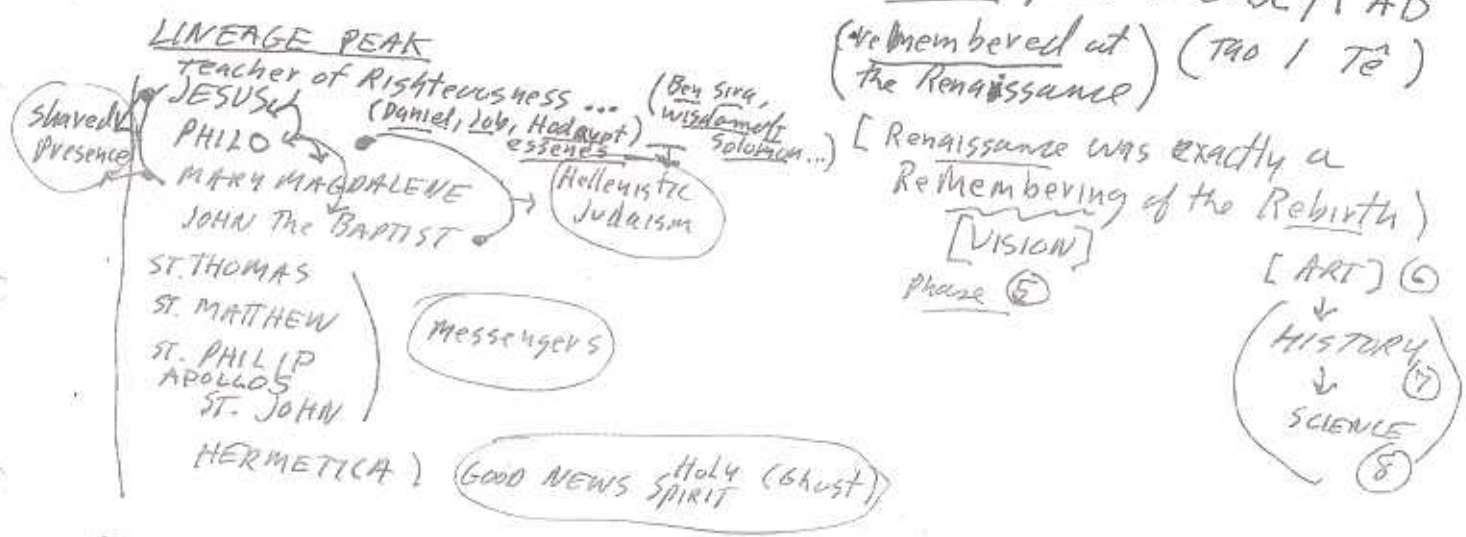 LINEAGE PEAK
Teacher of Righteousness ...
JESUS
(Daniel, Job, Hodayot)
essenes
(Ben Sira,
Wisdom of
Solomon...)
Shared
Presence
PHILO
MARY MAGDALENE
JOHN The BAPTIST
Hellenistic
Judaism
ST. THOMAS
ST. MATTHEW
ST. PHILIP
APOLLOS
ST. JOHN
Messengers
HERMETICA )
GOOD NEWS HOLY SPIRIT (Ghost)
AD
(Remembered at
the Renaissance)
(TAO / Tê)
[Renaissance was exactly a
ReMembering of the Rebirth)
[VISION]
phase 5
[ART] 6
HISTORY
7
SCIENCE
8